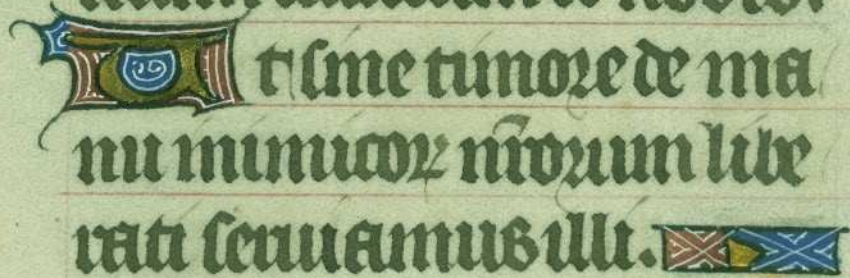 Ut sine timore de ma
nu inimicoꝝ nr̄orum libe
rati seruiamus illi.